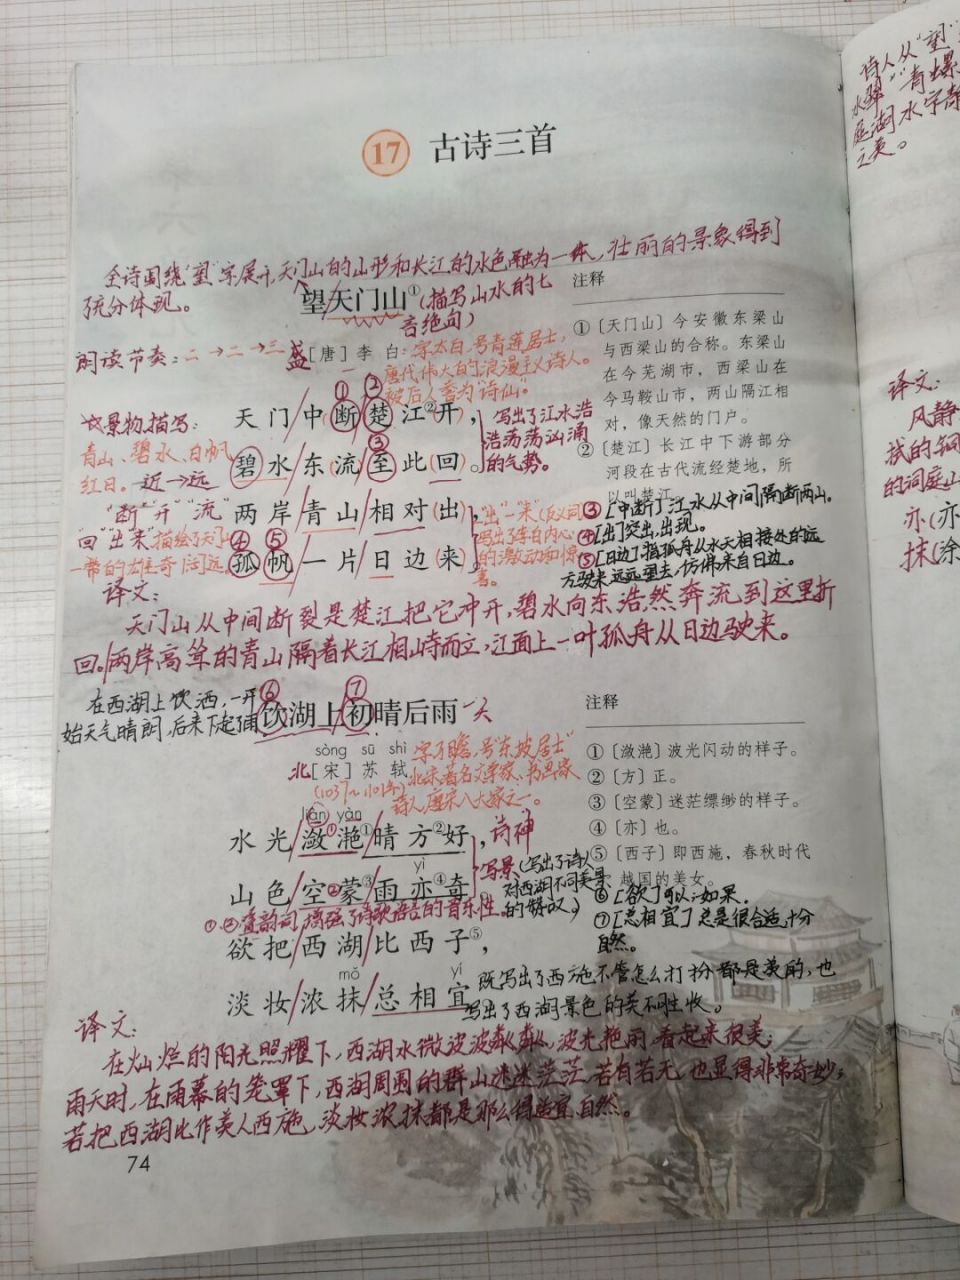 17 古诗三首
全诗围绕"望"字展开,天门山的山形和长江的水色融为一体,壮丽的景象得到
了充分体现。
望天门山①(描写山水的七
言绝句)
朗读节奏:二→二→三
盛[唐]李白:字太白,号青莲居士,
唐代伟大的浪漫主义诗人。
被后人誉为"诗仙"
① ②
天门中断楚江②开,
写出了江水浩
浩荡荡汹涌
的气势。
③
碧水东流至此回。
景物描写:
青山、碧水、白帆
红日。近→远
两岸青山相对出,
"断""开""流"
"回""出""来"描绘了天门山
一带的雄奇阔远。
④ ⑤
孤帆一片日边来。
"出""来"
写出了李白内心
的激动和惊
喜。
注释
①〔天门山〕今安徽东梁山
与西梁山的合称。东梁山
在今芜湖市,西梁山在
今马鞍山市,两山隔江相
对,像天然的门户。
②〔楚江〕长江中下游部分
河段在古代流经楚地,所
以叫楚江。
③[中断]江水从中间隔断两山。
④[出]突出,出现。
⑤[日边]指孤舟从水天相接处的远
方驶来,远远望去,仿佛来自日边。
译文:
天门山从中间断裂是楚江把它冲开,碧水向东浩然奔流到这里折
回。两岸高耸的青山隔着长江相峙而立,江面上一叶孤舟从日边驶来。
在西湖上饮酒,一开
始天气晴朗,后来下起了雨
⑥ ⑦
饮湖上初晴后雨
sòng sū shì
北[宋]苏轼
(1037~1101年)
字子瞻,号"东坡居士"
北宋著名文学家、书画家
诗人,唐宋八大家之一。
liàn yàn
水光潋滟①晴方②好,
诗神
yì
山色空蒙③雨亦④奇。
写景(写出了诗人
对西湖不同美景
的赞叹。)
①②叠韵词,增强了诗歌语言的音乐性。
欲把西湖比西子⑤,
mǒ yí
淡妆浓抹总相宜。
既写出了西施不管怎么打扮都是美的,也
写出了西湖景色的美不胜收。
注释
①〔潋滟〕波光闪动的样子。
②〔方〕正。
③〔空蒙〕迷茫缥缈的样子。
④〔亦〕也。
⑤〔西子〕即西施,春秋时代
越国的美女。
⑥[欲]可以;如果。
⑦[总相宜]总是很合适,十分
自然。
译文:
在灿烂的阳光照耀下,西湖水微波粼粼,波光艳丽,看起来很美;
雨天时,在雨幕的笼罩下,西湖周围的群山迷迷茫茫,若有若无,也显得非常奇妙;
若把西湖比作美人西施,淡妆浓抹都是那么得适宜自然。
74
诗人从"望"
"青螺
庭湖水宁静
之美。
译文:
风静
拭的铜
的洞庭山
亦(亦
抹(涂